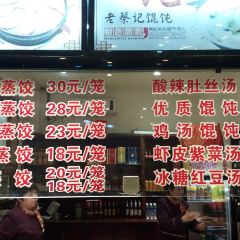 老蔡记馄饨
蒸饺 30元/笼 酸辣肚丝汤
蒸饺 28元/笼 优质馄饨
蒸饺 23元/笼 鸡汤馄饨
蒸饺 18元/笼 虾皮紫菜汤
饺 20元/笼 冰糖红豆汤
18元/笼